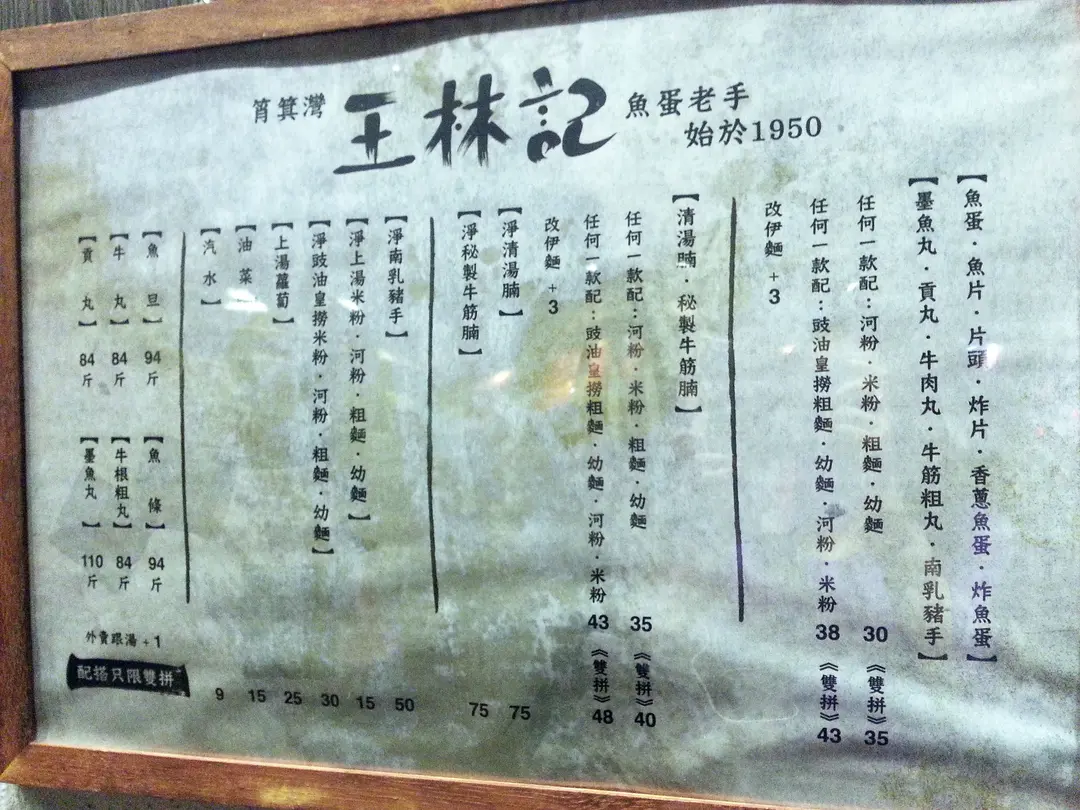 筲箕灣
王林記
魚蛋老手
始於1950
【魚蛋·魚片·片頭·炸片·香蔥魚蛋·炸魚蛋】
【墨魚丸·貢丸·牛肉丸·牛筋粗丸·南乳豬手】
任何一款配：河粉·米粉·粗麵·幼麵 30 《雙拼》35
任何一款配：豉油皇撈粗麵·幼麵·河粉·米粉 38 《雙拼》43
改伊麵+3
【清湯腩·秘製牛筋腩】
任何一款配：河粉·米粉·粗麵·幼麵 35 《雙拼》40
任何一款配：豉油皇撈粗麵·幼麵·河粉·米粉 43 《雙拼》48
改伊麵+3
【淨清湯腩】 75
【淨秘製牛筋腩】 75
【淨南乳豬手】 50
【淨上湯米粉·河粉·粗麵·幼麵】 15
【淨豉油皇撈米粉·河粉·粗麵·幼麵】 30
【上湯蘿蔔】 25
【油菜】 15
【汽水】 9
【魚旦】 94斤
【牛丸】 84斤
【貢丸】 84斤
【魚條】 94斤
【牛根粗丸】 84斤
【墨魚丸】 110斤
外賣跟湯+1
配搭只限雙拼